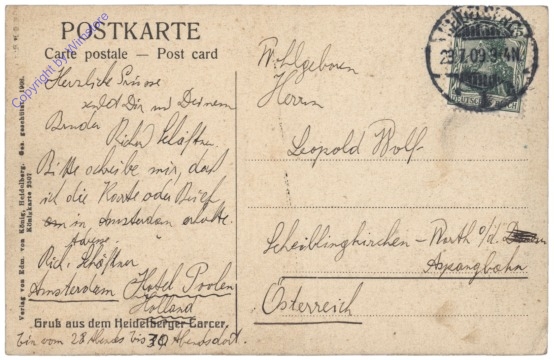 POSTKARTE
Carte postale — Post card
Copyright by Winstore
Herzliche Grüsse
Dir und Deinem
Bruder
Bitte schreibe mir, dass
ich die Karte oder Brief
in Amsterdam erhalte.
Adresse
Rich. Schäftner
Amsterdam Hotel Poolen
Holland
Gruß aus dem Heidelberger Carcer.
Bin vom 28 Abends bis 30 Abends dort.
Verlag von Edm. von König, Heidelberg. Ges. geschützt 1906.
Wohlgeboren
Herrn
Leopold Wolf
Scheiblingkirchen - Warth a/d.
Aspangbahn
Österreich
23.7.09.3-4N.
DEUTSCHES REICH